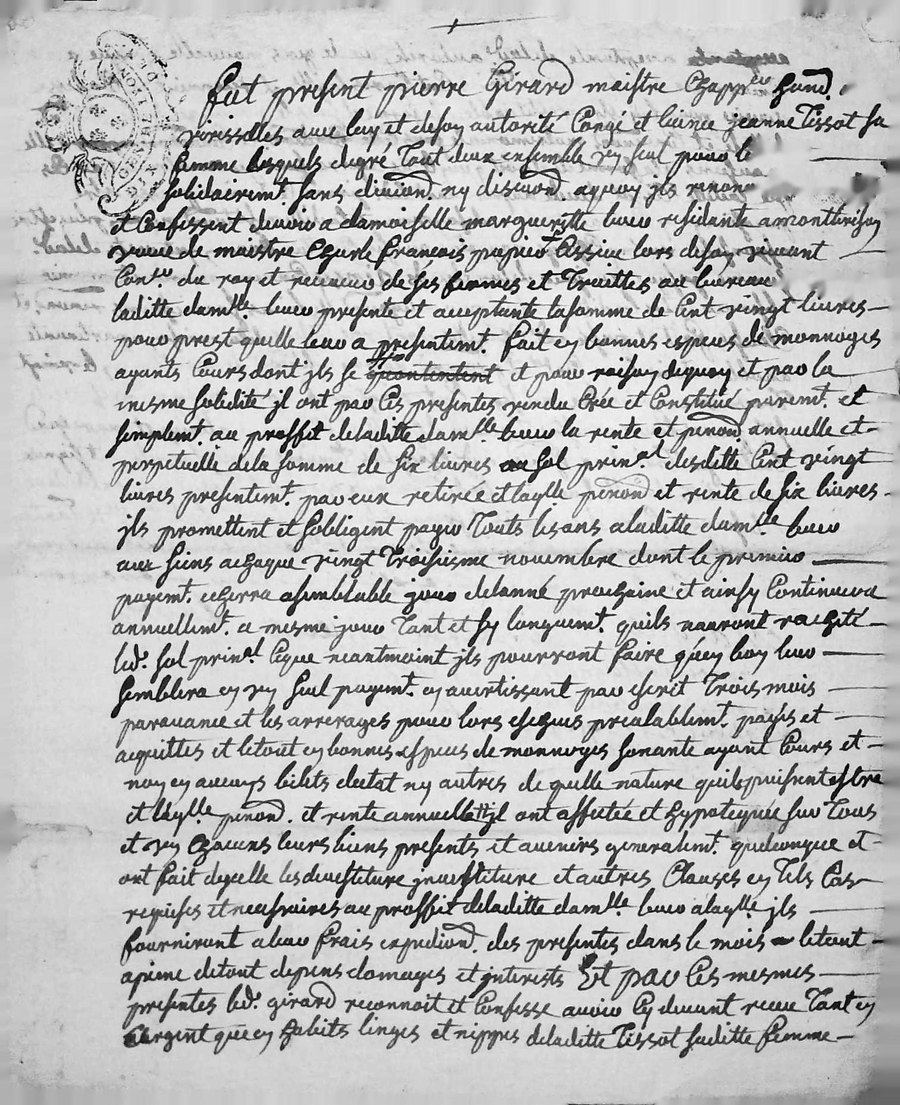 fut present pierre Girard maistre Chapp.er hand.
virisselles avec luy et desoy autorité Congé et licence jeanne Tissot sa
femme lesquels degré Tout deux ensemble un seul pour le
solidairemt. sans division. ny discution. aquoy jls renon
et Confessent devoir a damoiselle marguerite residante amontbrison
veuve de maistre Charle francois papier assiue lors desoy vivant
Conser. du roy et receveur de ses fermes et Traittes au bureau
laditte damlle. presente et acceptante lasomme de Cent vingt livres
pour prest quelle leur a presentemt. fait en bonnes especes de monnoyes
ayants Cours dont jls se contentent et pour raison dequoy et par la
mesme solidité jl ont par Ces presentes vendu Crée et Constitué puremt. et
simplemt. au proffit deladitte damlle. la rente et pension. annuelle et
perpetuelle dela somme de six livres au sol prinal. desdette Cent vingt
livres presentemt. par eux retirée et laqlle pension et rente de six livres
jls promettent et sobligent payer Touts lesans aladitte damlle.
aux siens achaque vingt Troisiesme novembre dont le premier
payemt. echerra asemblable jour delanné prochaine et ainsy Continuera
annuellemt. a mesme jour Tant et sy longuemt. quils nauront rachité
led. sol prinal. Ceque neantmoint jls pourront faire q'uen bon leur
semblera en un seul payemt. en avertissant par escrit Trois mois
paravance et les arrerages pour lors escheus prealablemt. payés et
acquittes et letout en bonnes especes de monnoyes sonante ayant Cours et
non en aucuns bilets destat ny autres de quelle nature quils puissent estre
et laqlle. pension. et rente annuelle jl ont affectée et hypotequée sur Tous
et un Chacuns leurs biens presents et avenirs generalemt. quelconque et
ont fait dycelle les devestiture jnvestiture et autres Clauses en Tels Cas
requises et necessaires au proffit deladitte damlle. alaqlle. jls
fourniront aleur frais expedion. des presentes dans le mois letout
apiene detout depens domages et jnterests Et par Ces mesmes
presentes led. girard reconnoit et Confesse avoir Cy devant receu Tant en
argent que en habits linges et nippes deladitte Tissot saditte femme